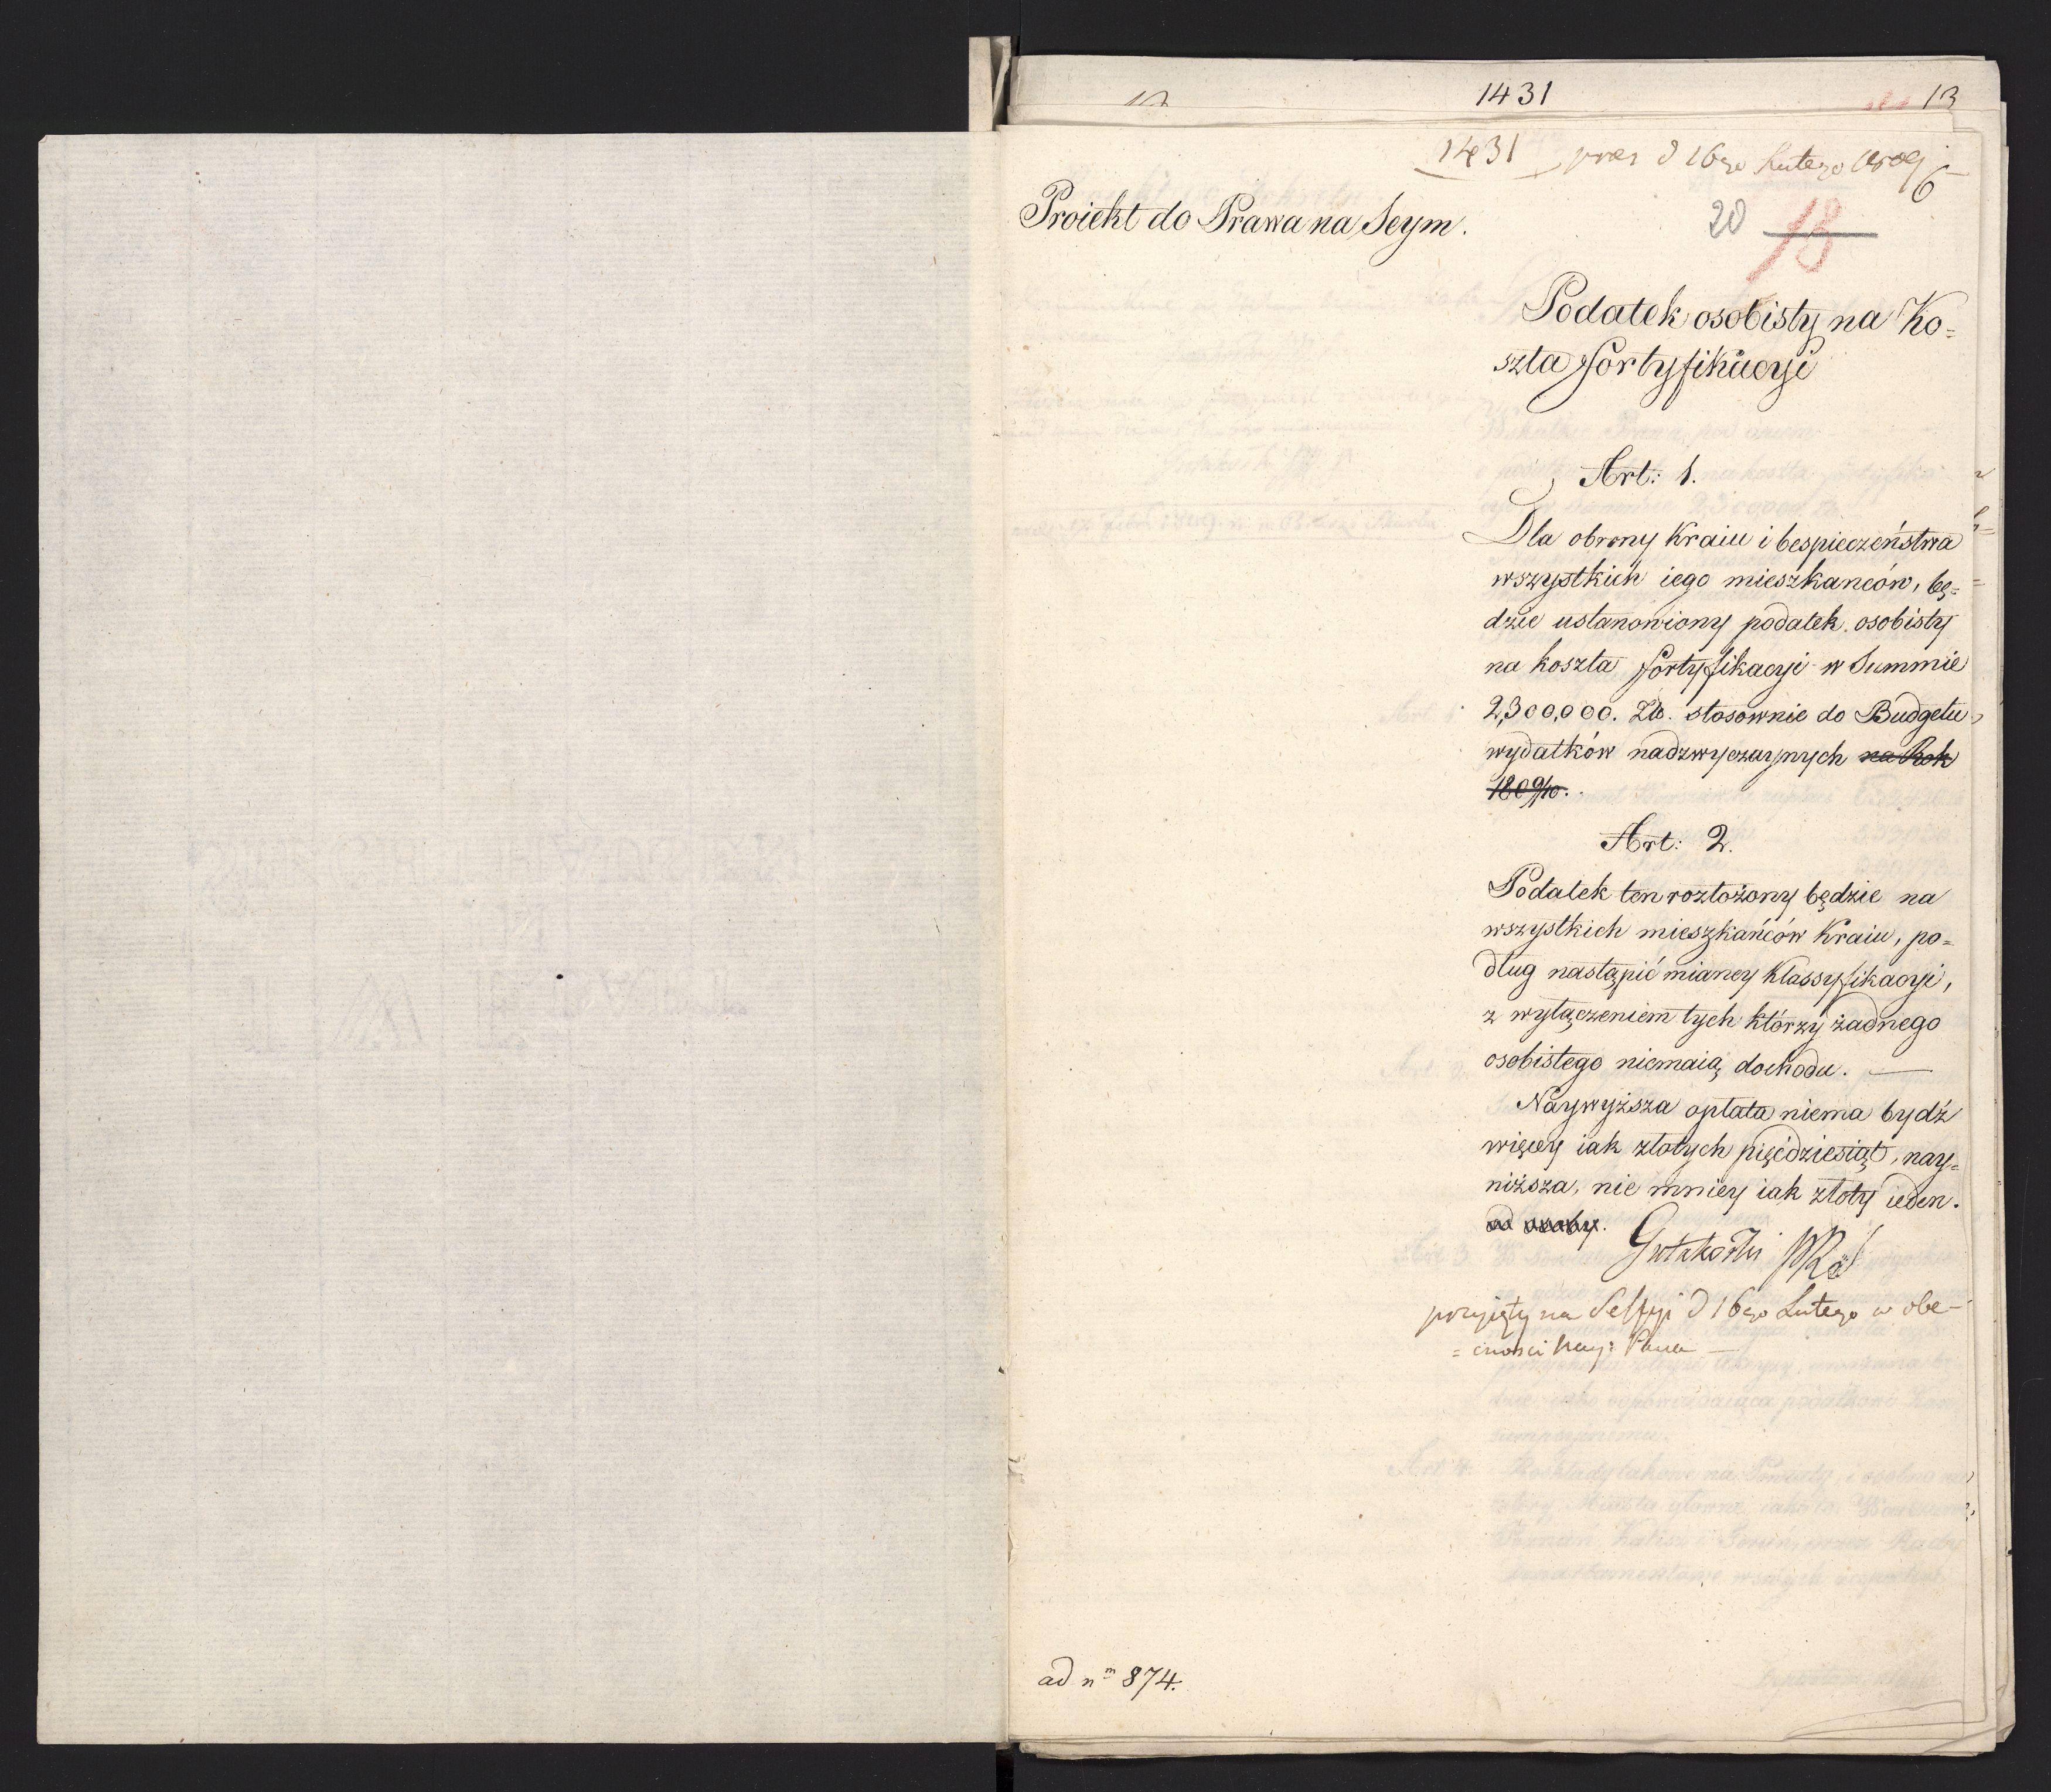 1431
13
1431 pres d 16go Lutego 1809
6
Proiekt do Prawa na Seym.
20 18
Podatek osobisty na Ko=
szta fortyfikacyi
Art: 1.
Dla obrony Kraiu i bespieczeństwa
wszystkich iego mieszkańców, bę=
dzie ustanowiony podatek osobisty
na koszta fortyfikacyi w Summie
2,300,000. Zło. stosownie do Budgetu
wydatków nadzwyczaynych na Rok
1809/10.
Art: 2.
Podatek ten rozłożony będzie na
wszystkich mieszkańców Kraiu, po=
dług nastąpić mianey Klassyfikacyi,
z wyłączeniem tych którzy żadnego
osobistego niemaią dochodu. —
Naywyższa opłata niema bydź
więcey iak złotych pięćdziesiąt, nay=
niższa, nie mniey iak złoty ieden.
od osoby.
Gutakowski
przyięty na Sessyi d 16go Lutego w obe=
=cności Nay: Pana —
ad nm 874.